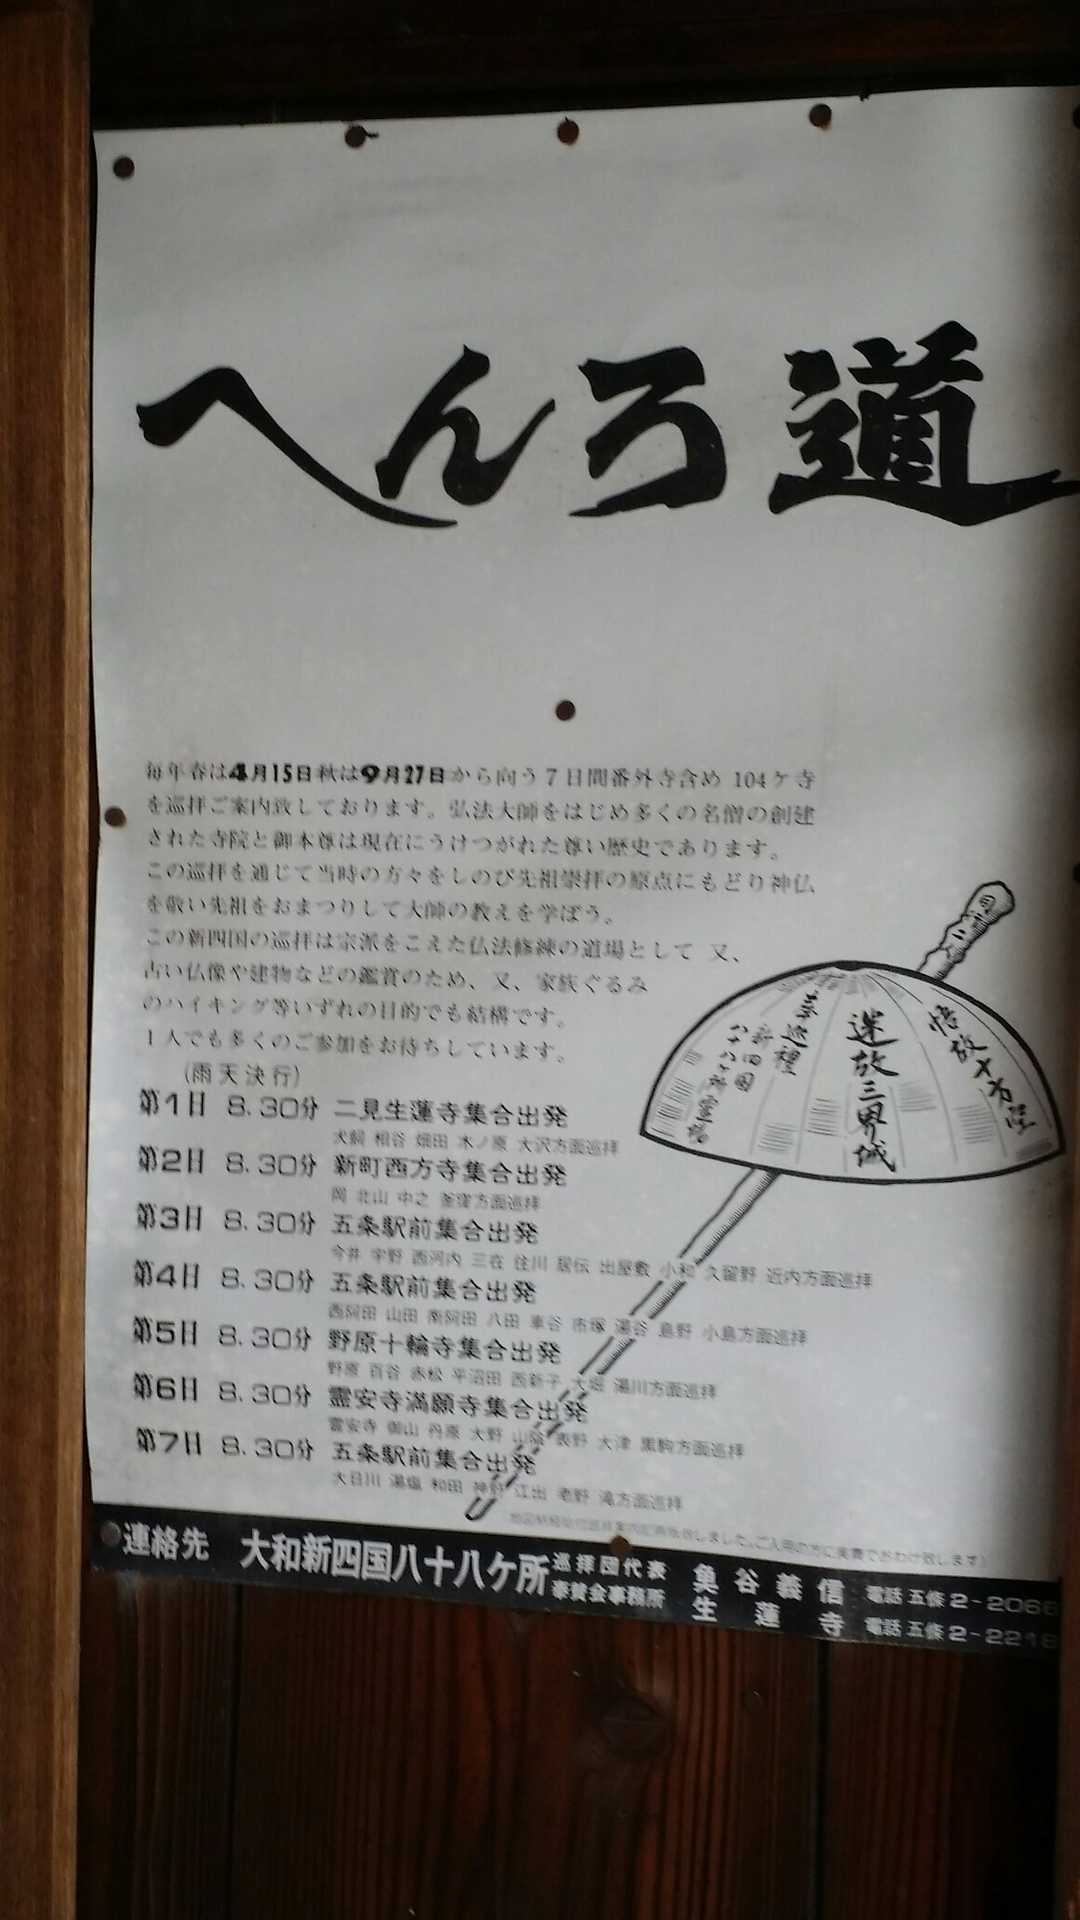 へんろ道
毎年春は4月15日秋は9月27日から向う7日間番外寺含め104ケ寺
を巡拝ご案内致しております。弘法大師をはじめ多くの名僧の創建
された寺院と御本尊は現在にうけつがれた尊い歴史であります。
この巡拝を通じて当時の方々をしのび先祖崇拝の原点にもどり神仏
を敬い先祖をおまつりして大師の教えを学ぼう。
この新四国の巡拝は宗派をこえた仏法修練の道場として 又、
古い仏像や建物などの鑑賞のため、又、家族ぐるみ
のハイキング等いずれの目的でも結構です。
1人でも多くのご参加をお待ちしています。
(雨天決行)
悟故十方空
迷故三界城
奉巡禮
新四国
八十八ヶ所霊場
第1日 8.30分 二見生蓮寺集合出発
犬飼 相谷 畑田 木ノ原 大沢方面巡拝
第2日 8.30分 新町西方寺集合出発
岡 北山 中之 釜窪方面巡拝
第3日 8.30分 五条駅前集合出発
今井 宇野 西河内 三在 住川 居伝 出屋敷 小和 久留野 近内方面巡拝
第4日 8.30分 五条駅前集合出発
西阿田 山田 南阿田 八田 車谷 市塚 湯谷 島野 小島方面巡拝
第5日 8.30分 野原十輪寺集合出発
野原 百谷 赤松 平沼田 西新子 大畑 湯川方面巡拝
第6日 8.30分 霊安寺満願寺集合出発
霊安寺 御山 丹原 大野 山陰 表野 大津 黒駒方面巡拝
第7日 8.30分 五条駅前集合出発
大日川 湯塩 和田 神野 江出 老野 滝方面巡拝
致しました。ご入用の方に実費でおわけ致します)
連絡先 大和新四国八十八ケ所 巡拝団代表 亀谷義信 電話 五條 2-2066
奉賛会事務所 生蓮寺 電話 五條 2-2218